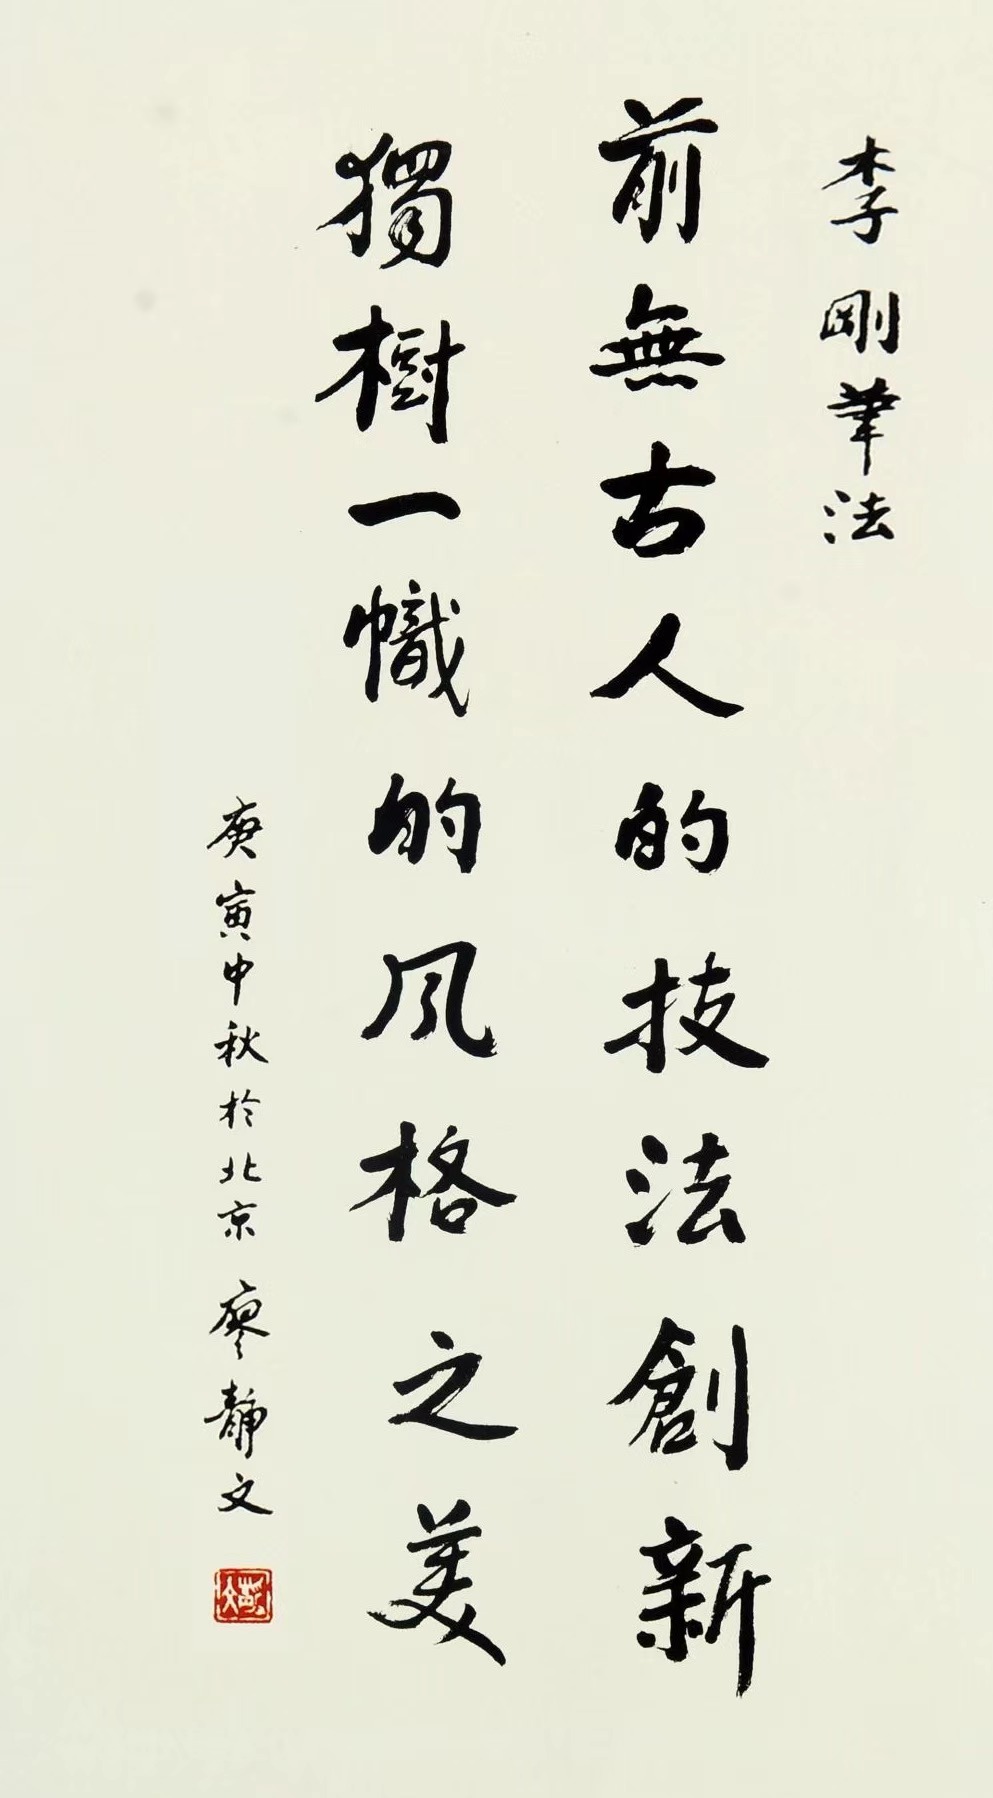 李剛筆法
前無古人的技法創新
獨樹一幟的风格之美
庚寅中秋於北京 廖靜文